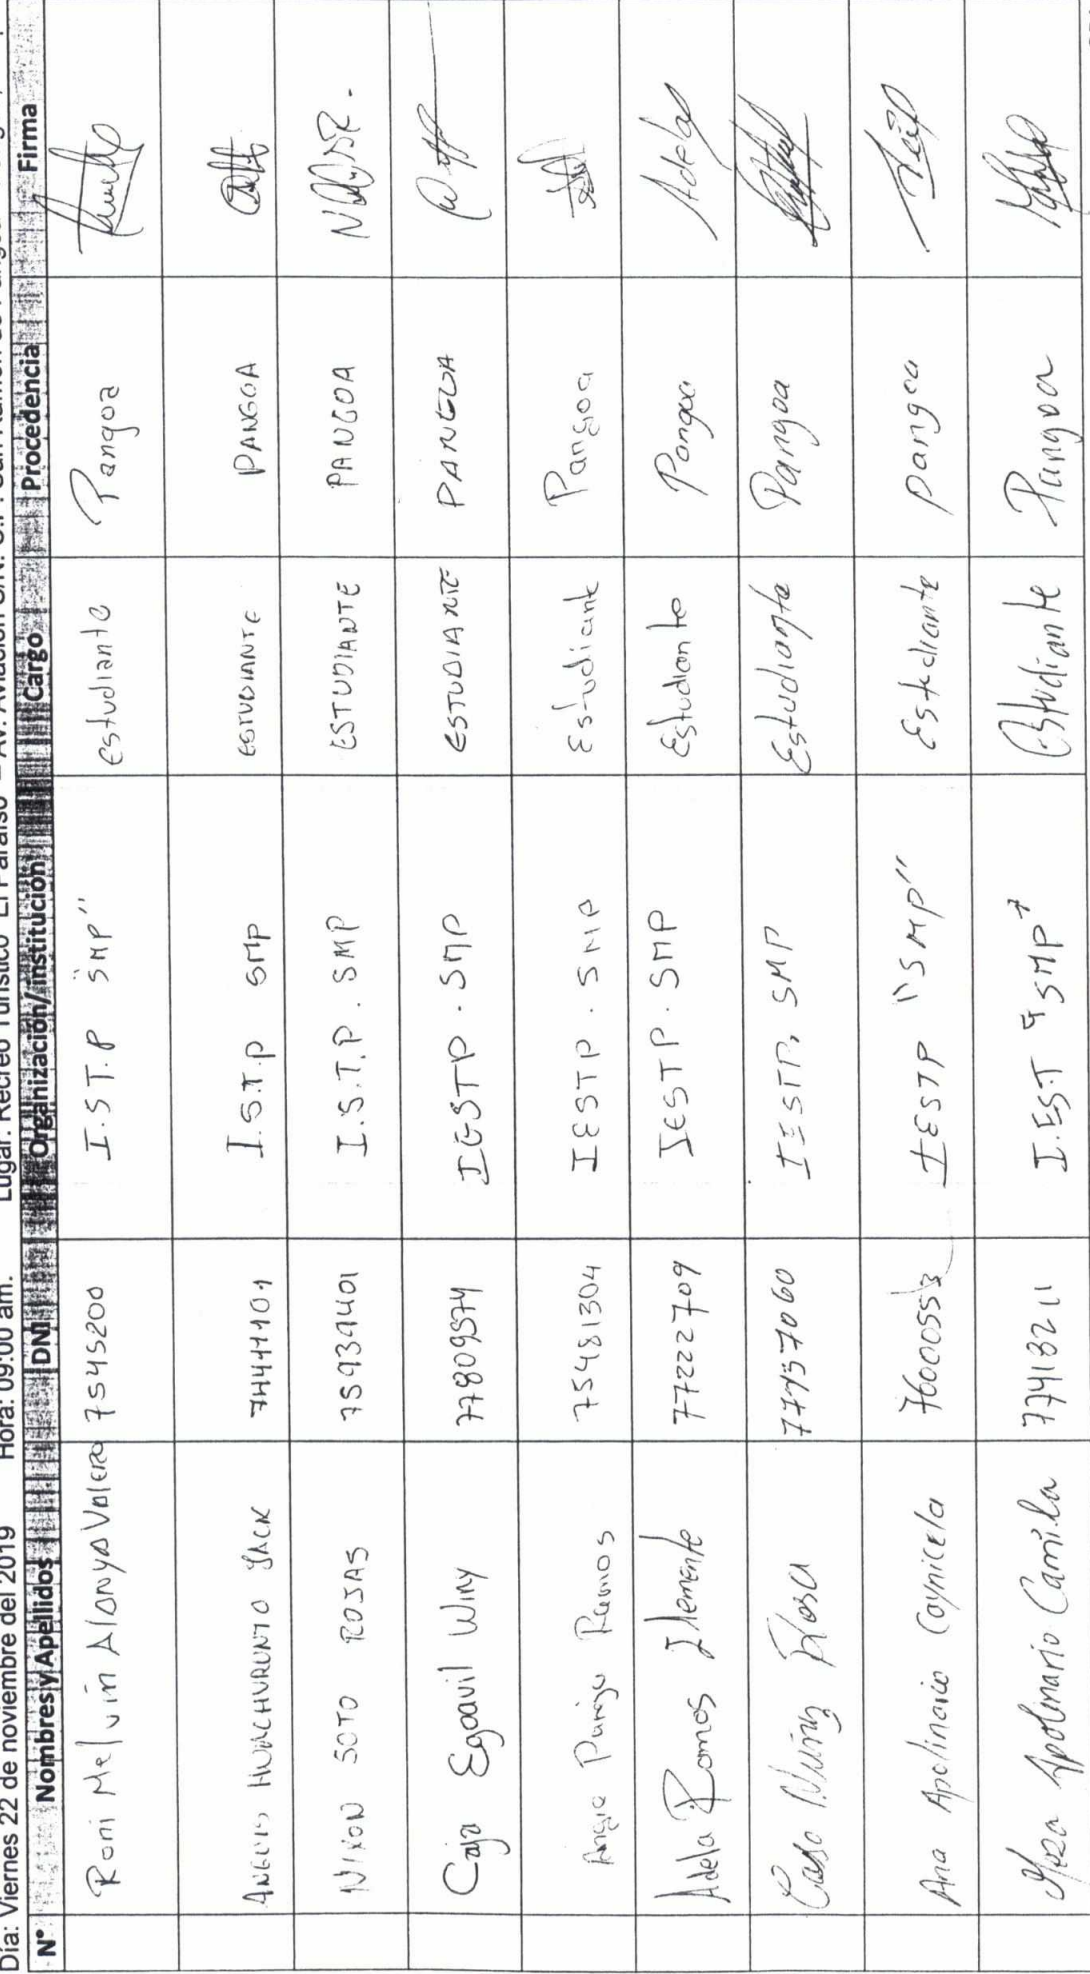 Día: Viernes 22 de noviembre del 2019 Hora: 09:00 am. Lugar: Recreo Turístico El Paraíso – AV. Aviación S/N.
N° Nombres y Apellidos DNI Organización/institución Cargo Procedencia Firma
Roni Melvin Aldnya Valero 7545200 I.S T.P "SMP" estudiante Pangoa
HUACHURUNTO JACK I.S.T.P SMP ESTUDIANTE PANGOA
NIXON SOTO ROJAS I.S.T.P. SMP ESTUDIANTE PANGOA
Caja Egoavil Winy 77809574 IESTP. SMP ESTUDIANTE PANGOA
Angie Pariza Ramos 75481304 IESTP. SMP Estudiante Pangoa
Adela Ramos Illemente 77222709 IESTP. SMP Estudiante Pangoa Adela
Caso Nuñez Rosa 77757060 IESTP. SMP Estudiante Pangoa
Ana Apolinario Coynicela IESTP "SMP" Estudiante pangoa
Meza Apolinario Camila I.EST "SMP" Estudiante Pangoa